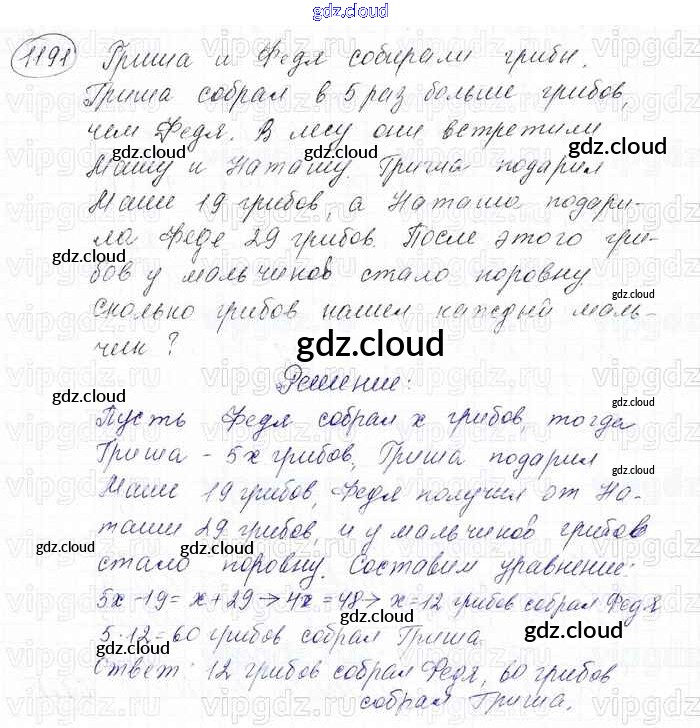 gdz.cloud
1191 Гриша и Федя собирали грибы.
Гриша собрал в 5 раз больше грибов,
чем Федя. В лесу они встретили
Машу и Наташу. Гриша подарил
Маше 19 грибов, а Наташа подари-
ла Феде 29 грибов. После этого гри-
бов у мальчиков стало поровну.
Сколько грибов нашел каждый маль-
чик?
Решение:
Пусть Федя собрал x грибов, тогда
Гриша - 5x грибов, Гриша подарил
Маше 19 грибов, Федя получил от На-
таши 29 грибов, и у мальчиков грибов
стало поровну. Составим уравнение:
5x-19=x+29→4x=48→x=12 грибов собрал Федя
5·12=60 грибов собрал Гриша
Ответ: 12 грибов собрал Федя, 60 грибов
собрал Гриша.